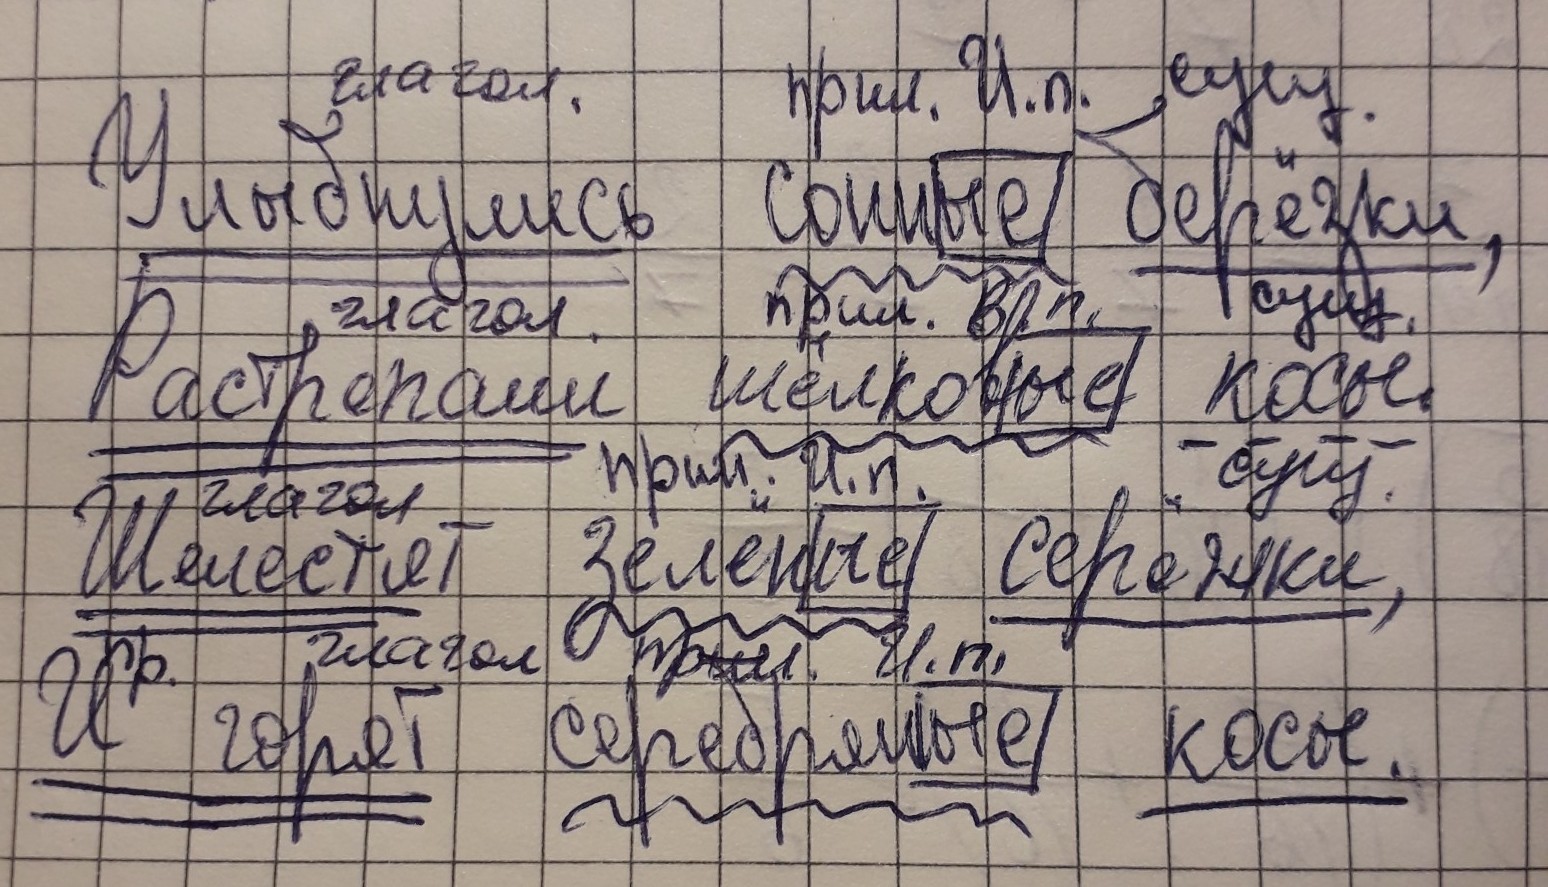 глагол. прил. И.п. сущ.
Улыбнулись сонные берёзки,
глагол. прил. В.п. сущ.
Растрепали шёлковые косы.
глагол прил. И.п. сущ.
Шелестят зелёные серёжки,
пр. глагол прил. И.п.
И горят серебряные косы.